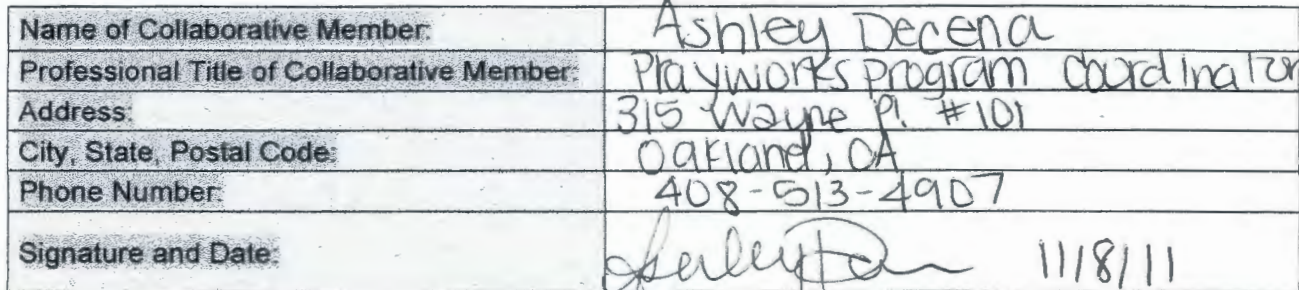 Name of Collaborative Member: Ashley Decena
Professional Title of Collaborative Member: Playworks program coordinator
Address: 315 Wayne Pl. #101
City, State, Postal Code: Oakland, CA
Phone Number: 408-513-4907
Signature and Date: 11/8/11